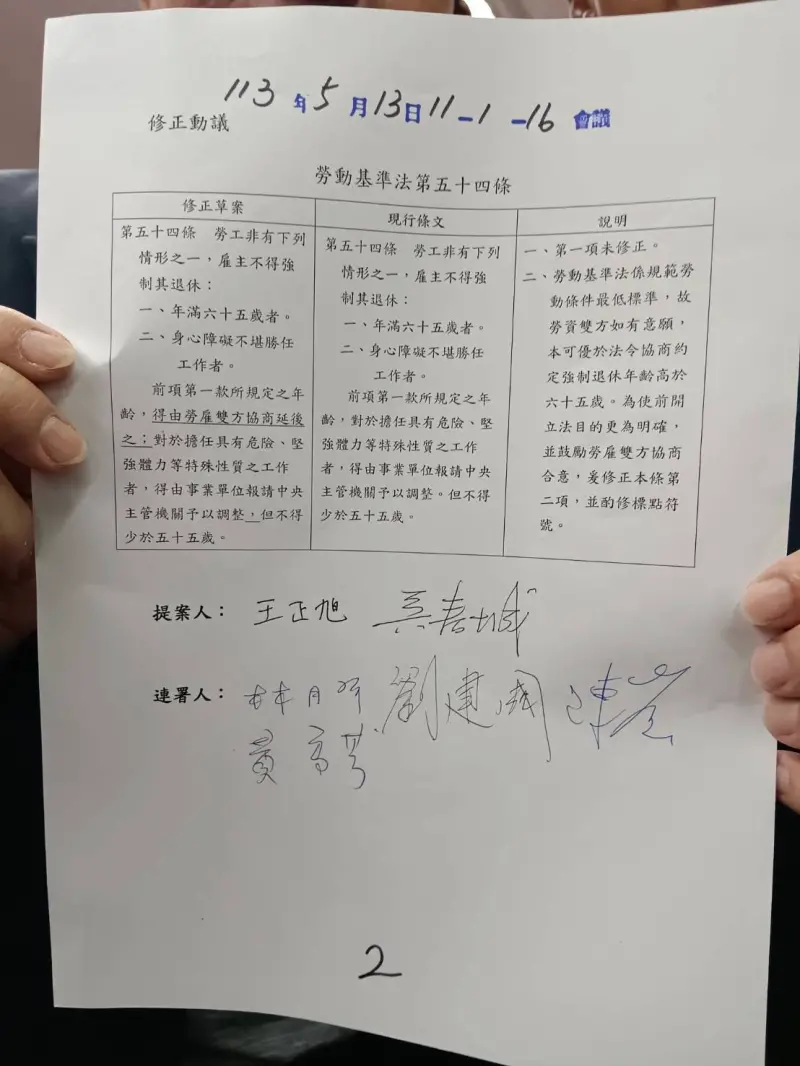 113年5月13日11-1-16會議
修正動議
勞動基準法第五十四條
修正草案
第五十四條 勞工非有下列
情形之一，雇主不得強
制其退休：
一、年滿六十五歲者。
二、身心障礙不堪勝任
工作者。
前項第一款所規定之年
齡，得由勞雇雙方協商延後
之；對於擔任具有危險、堅
強體力等特殊性質之工作
者，得由事業單位報請中央
主管機關予以調整，但不得
少於五十五歲。
現行條文
第五十四條 勞工非有下列
情形之一，雇主不得強
制其退休：
一、年滿六十五歲者。
二、身心障礙不堪勝任
工作者。
前項第一款所規定之年
齡，對於擔任具有危險、堅
強體力等特殊性質之工作
者，得由事業單位報請中央
主管機關予以調整。但不得
少於五十五歲。
說明
一、第一項未修正。
二、勞動基準法係規範勞
動條件最低標準，故
勞資雙方如有意願，
本可優於法令協商約
定強制退休年齡高於
六十五歲。為使前開
立法目的更為明確，
並鼓勵勞雇雙方協商
合意，爰修正本條第
二項，並酌修標點符
號。
提案人： 王正旭 吳春城
連署人： 林月琴 劉建國 陳菁
黃秀芳
2